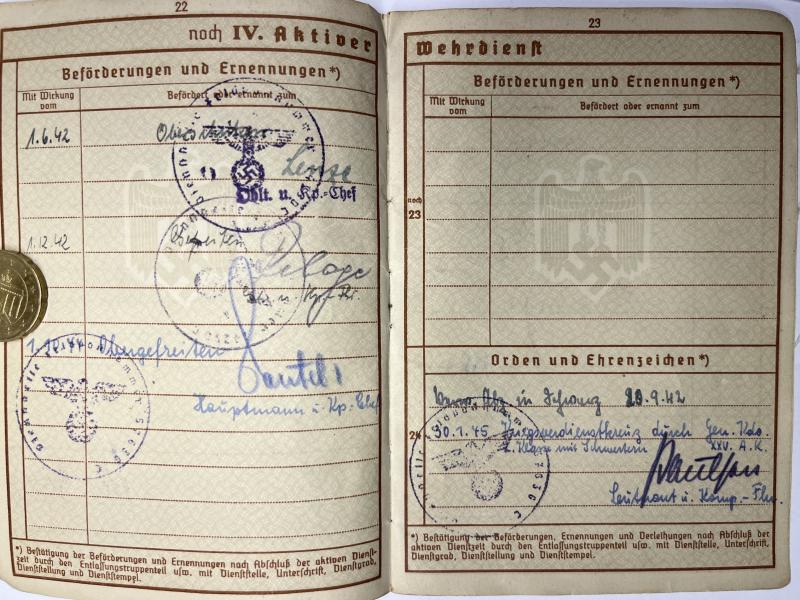 22
noch IV. Aktiver
Beförderungen und Ernennungen*)
Mit Wirkung
vom
Befördert oder ernannt zum
1.6.42
Oblt. u. Kp.-Chef
1.12.42
Obergefreiten
Hauptmann u. Kp. Chef
*) Bestätigung der Beförderungen und Ernennungen nach Abschluß der aktiven Dienst-
zeit durch den Entlassungstruppenteil usw. mit Dienststelle, Unterschrift, Dienstgrad,
Dienststellung und Dienststempel.
23
Wehrdienst
Beförderungen und Ernennungen*)
Mit Wirkung
vom
Befördert oder ernannt zum
noch
23
Orden und Ehrenzeichen*)
in Schwarz 20.9.42
24
30.1.45 Kriegsverdienstkreuz durch Gen. Kdo.
2. Klasse mit Schwertern XXV. A.K.
Leutnant u. Komp.-
*) Bestätigung der Beförderungen, Ernennungen und Verleihungen nach Abschluß der
aktiven Dienstzeit durch den Entlassungstruppenteil usw. mit Dienststelle, Unterschrift,
Dienstgrad, Dienststellung und Dienststempel.